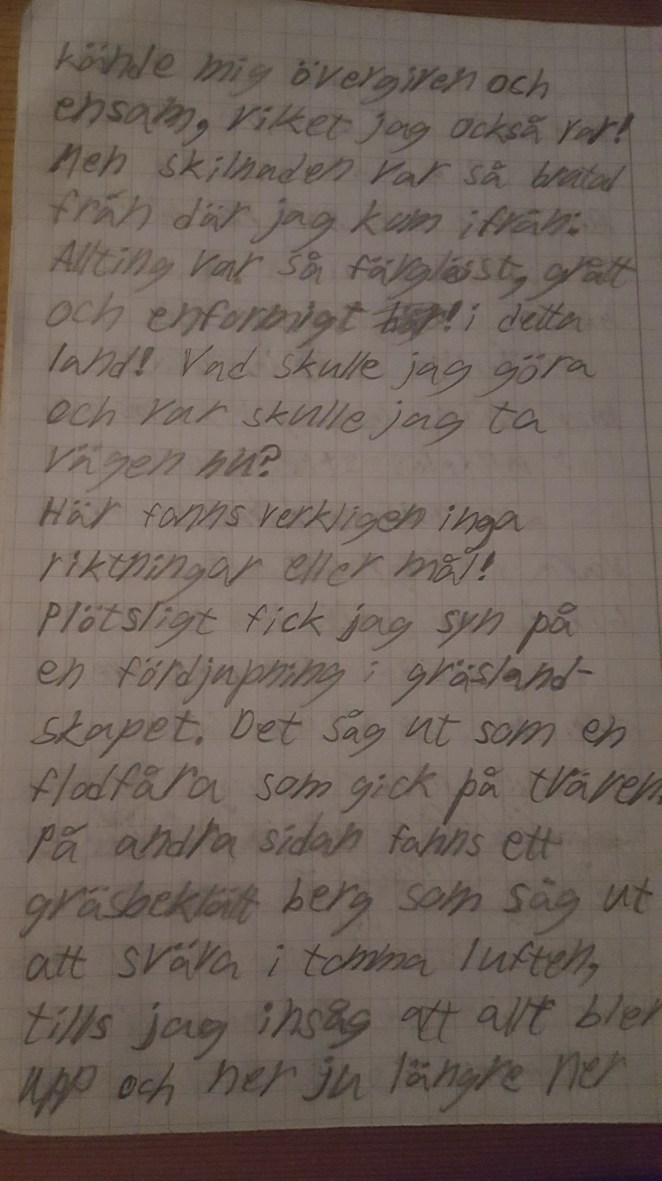 kände mig övergiven och
ensam, vilket jag också var!
Men skilnaden var så brutal
från där jag kom ifrån:
Allting var så färglöst, grått
och enformigt här! i detta
land! Vad skulle jag göra
och var skulle jag ta
vägen nu?
Här fanns verkligen inga
riktningar eller mål!
Plötsligt fick jag syn på
en fördjupning i gräsland-
skapet. Det såg ut som en
flodfåra som gick på tvären.
På andra sidan fanns ett
gräsbeklätt berg som såg ut
att sväva i tomma luften,
tills jag insåg att allt blev
upp och ner ju längre ner